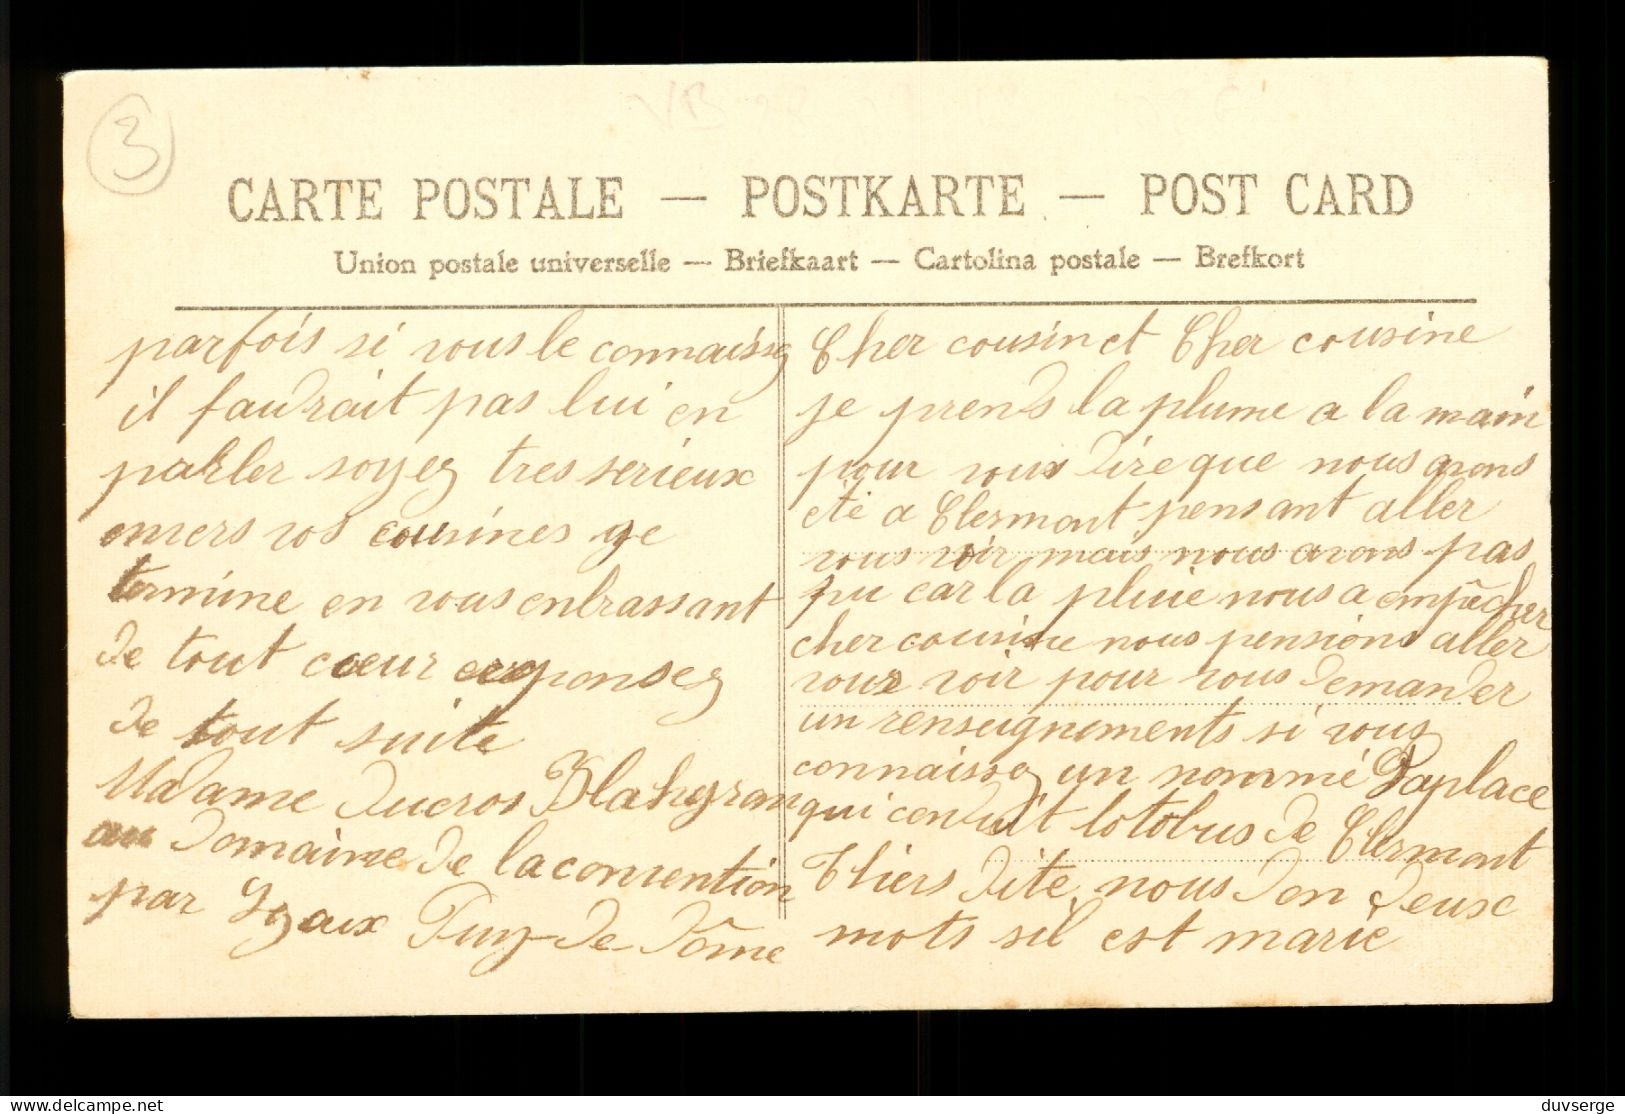 3
CARTE POSTALE — POSTKARTE — POST CARD
Union postale universelle — Briefkaart — Cartolina postale — Brefkort
Cher cousin et Cher cousine
je prends la plume a la main
pour vous dire que nous avons
ete a Clermont pensant aller
vous voir mais nous avons pas
pu car la pluie nous a empêcher
cher cousine nous pensions aller
vous voir pour vous demander
un renseignements si vous
connaissez un nommé Laplace
qui conduit lotobus de Clermont
Thiers dite nous don deux
mots sil est marié
parfois si vous le connaissez
il faudrait pas lui en
parler soyez tres serieux
envers vos cousines ge
termine en vous enbrassant
de tout cœur reponsez
de tout suite
Madame Ducros
au Domaime de la convention
par Puy-de-Dôme
duvserge